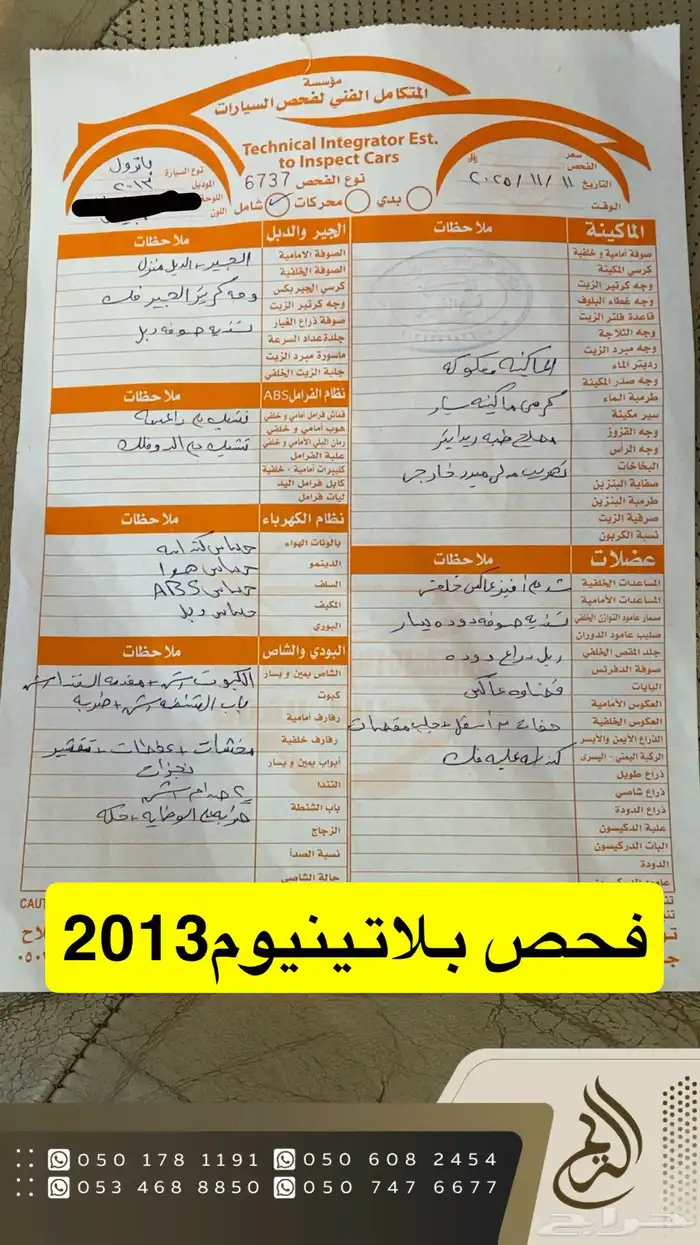 مؤسسة
المتكامل الفني لفحص السيارات
Technical Integrator Est.
to Inspect Cars
سعر الفحص
التاريخ ٢٠٢٥/١١/١١
الوقت
نوع الفحص 6737
بدي محركات شامل
نوع السيارة باترول
الموديل ٢٠١٣
اللوحة
اللون
الماكينة ملاحظات
صوفة أمامية و خلفية
كرسي المكينة
وجه كرتير الزيت
وجه غطاء البلوف
قاعدة فلتر الزيت
وجه الثلاجة
وجه مبرد الزيت
رديتر الماء
وجه صدر المكينة
طرمبة الماء
سير مكينة
وجه القزوز
وجه الرأس
البخاخات
صفاية البنزين
طرمبة البنزين
صرفية الزيت
نسبة الكربون
الماكينه مفكوكه
كرسي ماكينه يسار
مصلح طبه ريداتير
تهريب مدلى مبرد خارجي
عضلات ملاحظات
المساعدات الخلفية
المساعدات الأمامية
مسمار عامود التوازن الخلفي
صليب عامود الدوران
جلد المقص الخلفي
صوفة الدفرنس
البايات
العكوس الأمامية
العكوس الخلفية
الذراع الأيمن والأيسر
الركبة اليمنى - اليسرى
ذراع طويل
ذراع شاصي
ذراع الدودة
علبة الدركسون
البات الدركسون
الدودة
تنديه صوفه دوده يسار
ربل دراع دوده
الجير والدبل ملاحظات
الصوفة الامامية
الصوفة الخلفية
كرسي الجير بكس
وجه كرتير الزيت
صوفة ذراع الغيار
جلدة عداد السرعة
ماسورة مبرد الزيت
جلبة الزيت الخلفي
الجير + الدبل منزل
وجه كرتير الجير فك
تنديه صوفه دبل
نظام الفرامل ABS ملاحظات
قماش فرامل أمامي و خلفي
هوب أمامي و خلفي
رمان البلي الأمامي و خلفي
علبة الفرامل
كليبرات أمامية - خلفية
كابل فرامل اليد
ليات فرامل
نظام الكهرباء ملاحظات
بالونات الهواء
الدينمو
السلف
المكيف
البوري
حساس هوا
حساس ABS
حساس دبل
البودي والشاص ملاحظات
الشاص يمين و يسار
كبوت
رفارف أمامية
رفارف خلفية
أبواب يمين و يسار
التندا
باب الشنطة
الزجاج
نسبة الصدأ
حالة الشاصي
باب الشنطه رش + ضربه
CAUT
فحص بلاتينيوم2013
050 178 1191 050 608 2454
053 468 8850 050 747 6677
الريم
حراج